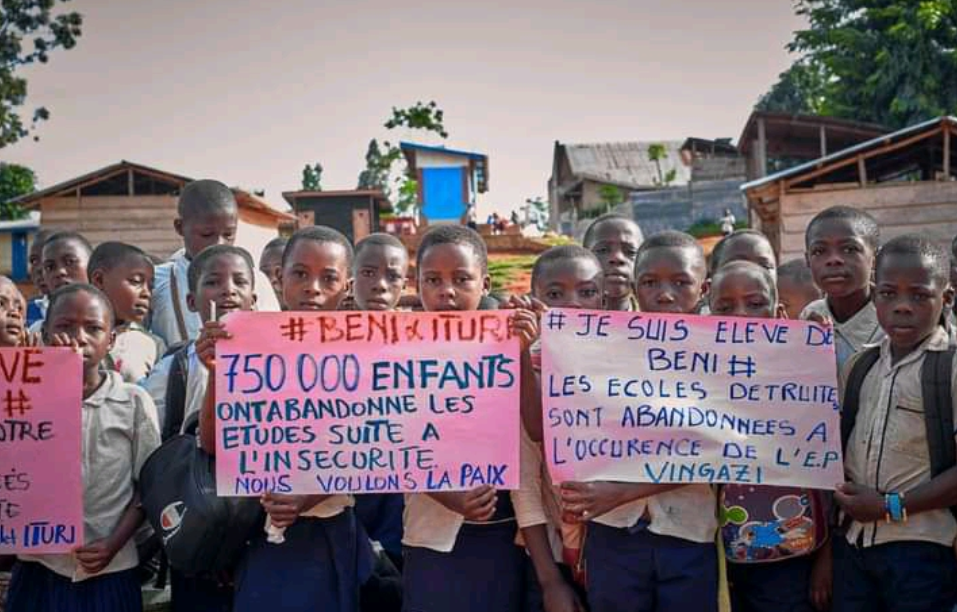 VE
#
OTRE
ÉS
TE
et ITURI
#BENI & ITURI
750 000 ENFANTS
ONT ABANDONNE LES
ETUDES SUITE A
L'INSECURITE
NOUS VOULONS LA PAIX
# JE SUIS ELEVE DE
BENI #
LES ECOLES DETRUITES
SONT ABANDONNEES A
L'OCCURENCE DE L'E.P
VINGAZI
Champion